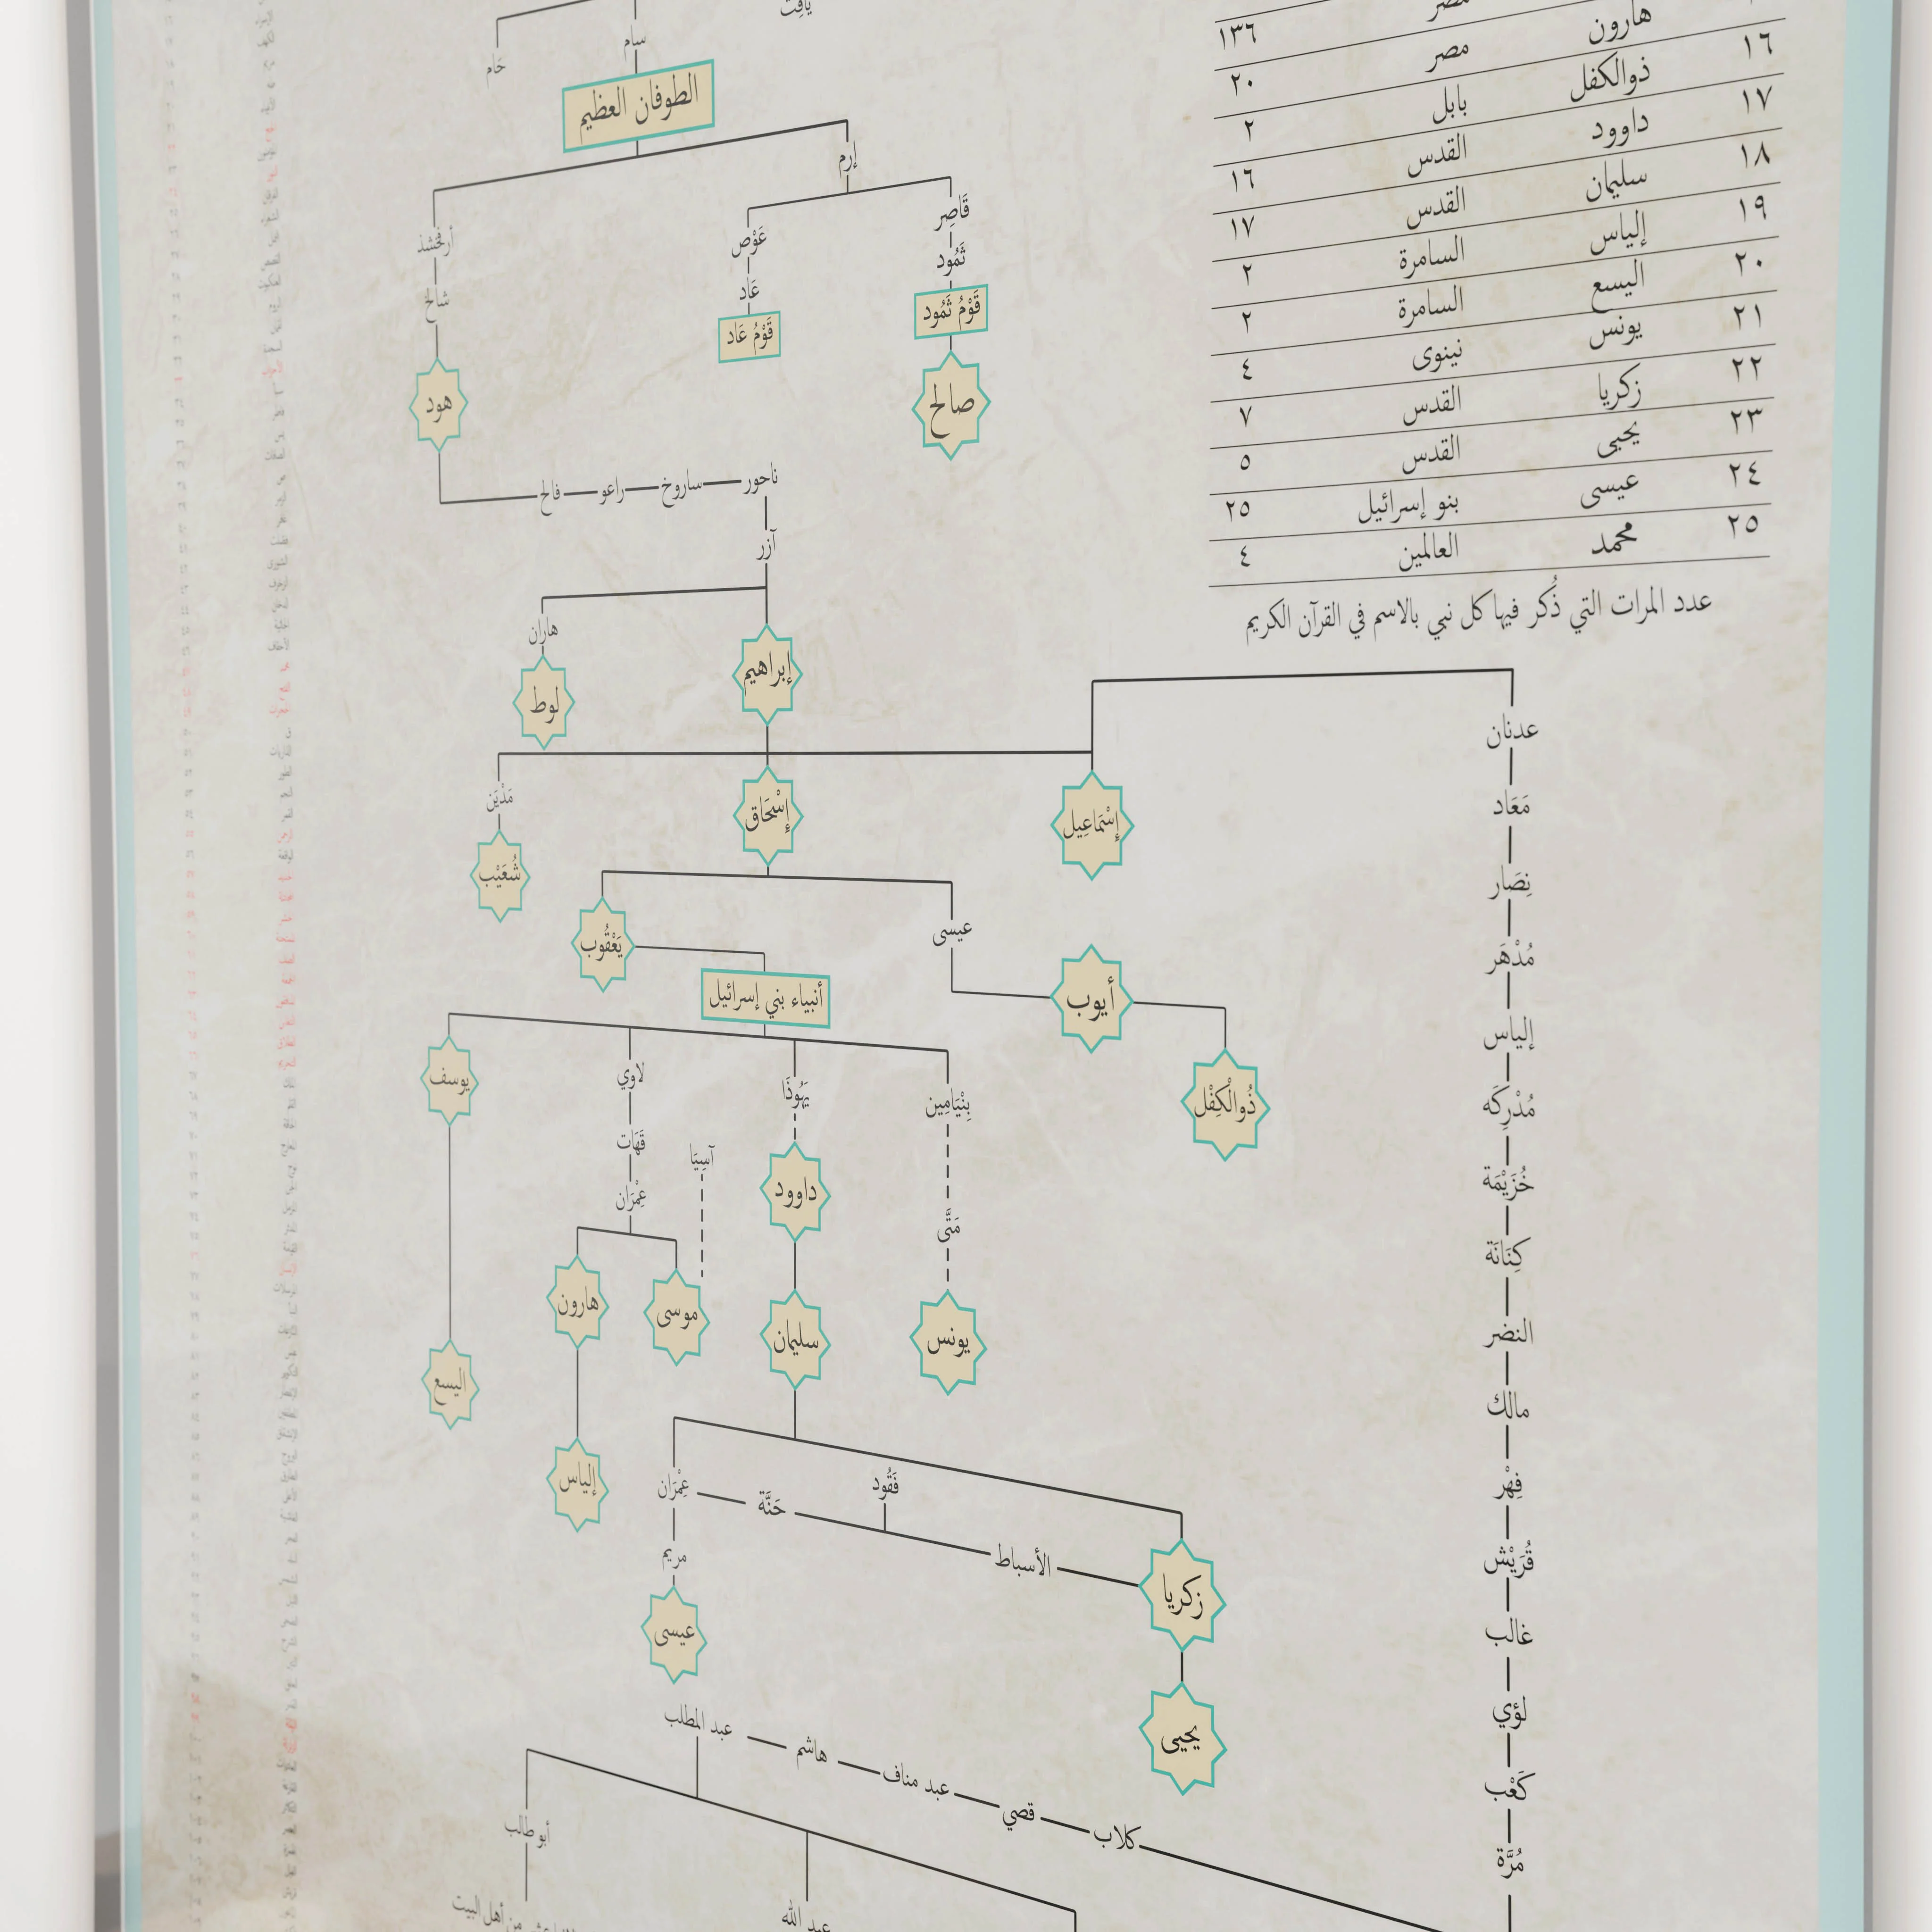 يافث
سام
حام
الطوفان العظيم
إرم
قَاصِر
عَوْص
أرفخشذ
ثَمُود
عَاد
شالخ
قَوْمُ ثَمُود
قَوْمُ عَاد
صالح
هود
ناحور ساروخ راعو فالخ
آزر
هاران
إبراهيم
لوط
١٣٦
هارون مصر ٢٠
١٦ ذوالكفل بابل ٢
١٧ داوود القدس ١٦
١٨ سليمان القدس ١٧
١٩ إلياس السامرة ٢
٢٠ اليسع السامرة ٢
٢١ يونس نينوى ٤
٢٢ زكريا القدس ٧
٢٣ يحيى القدس ٥
٢٤ عيسى بنو إسرائيل ٢٥
٢٥ محمد العالمين ٤
عدد المرات التي ذُكر فيها كل نبي بالاسم في القرآن الكريم
عدنان
مَعَاد
نِصَار
مُدْهَر
إلياس
مُدْرِكَه
خُزَيْمَة
كِنَانَة
النضر
مالك
فِهْر
قُرَيْش
غالب
لؤي
كَعْب
مُرَّة
إِسْمَاعِيل
إِسْحَاق
مَدْيَن
شُعَيْب
يَعْقُوب
عيسى
أيوب
ذُوالْكِفْل
أنبياء بني إسرائيل
بِنْيَامِين
يَهُوذَا
لاوي
يوسف
مَتَّى
آسِيَا
قَهَات
عِمْرَان
داوود
يونس
سليمان
موسى
هارون
اليسع
إلياس
فَقُود
عِمْرَان
حَنَّة
الأسباط
زكريا
مريم
عيسى
يحيى
كلاب قصي عبد مناف هاشم عبد المطلب
أبو طالب
عبد الله
من أهل البيت